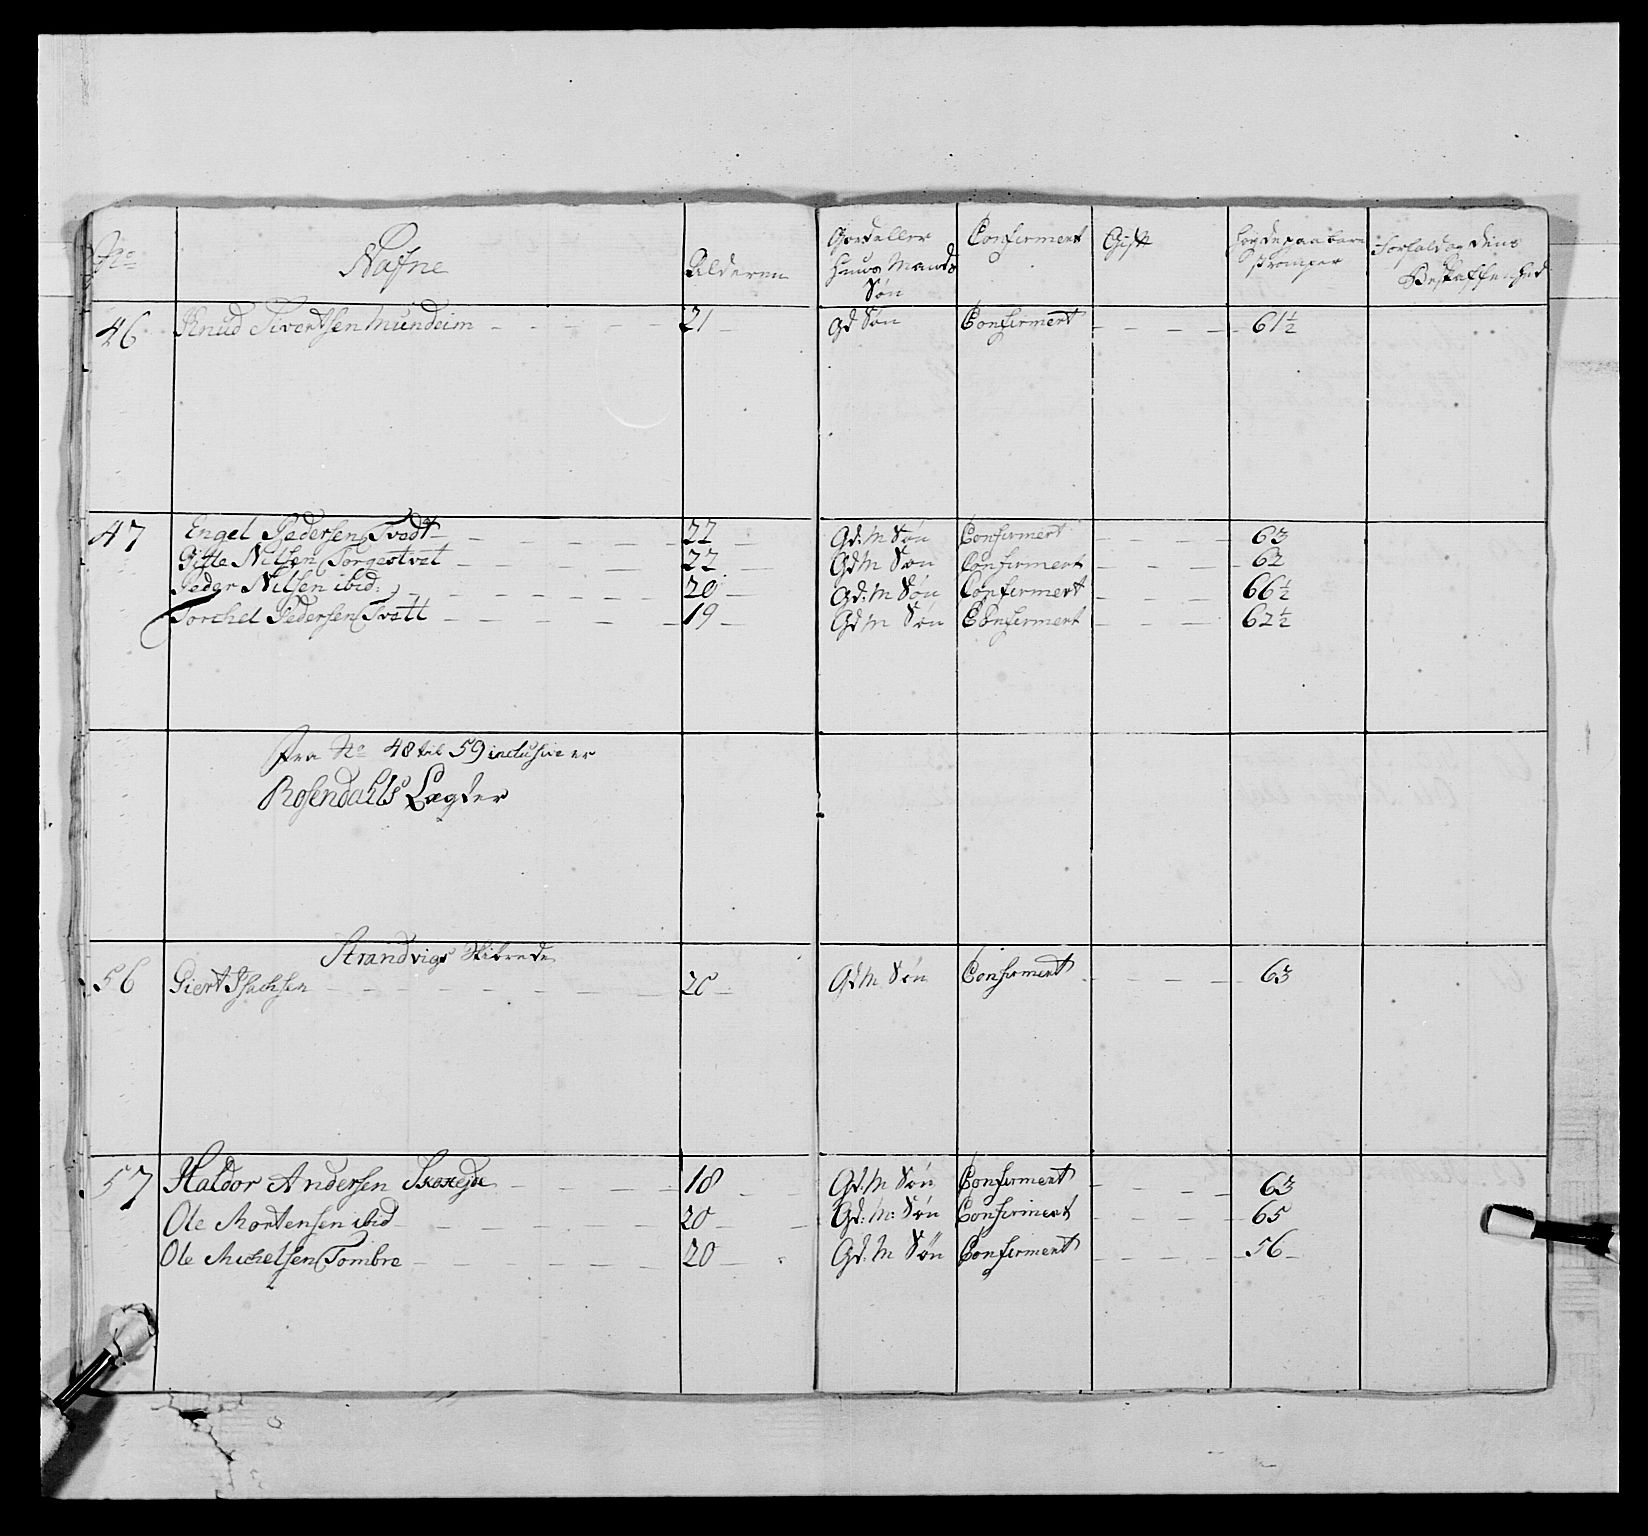 No Nafne Alderen Gord eller Huus Mands Søn Confirmert Gift Høyde paa bare strømper Forhold og dens Beskaffenhed
46 Knud Sivertsen Mundeim 21 Gd Søn Confirmert 61½
47 Engel Pedersen Tvedt 22 Gd: M Søn Confirmert 63
Gitle Nilsen Torgestvet 22 Gd M Søn Confirmert 62
Peder Nilsen ibid: 20 Gd: M Søn Confirmert 66½
Torchel Pedersen Tvett 19 Gd M Søn Confirmert 62½
Fra No 48 til 59 inclusive er
Rosendahls Lægder
Strandvigs Skibrede
56 Giert Isachsen 20 Gd M Søn Confirmert 63
57 Haldor Andersen 18 Gd: M Søn Confirmert 63
Ole Mortensen ibid 20 Gd: M: Søn Confirmert 65
Ole Michelsen Tombre 20 Gd: M Søn Confirmert 56